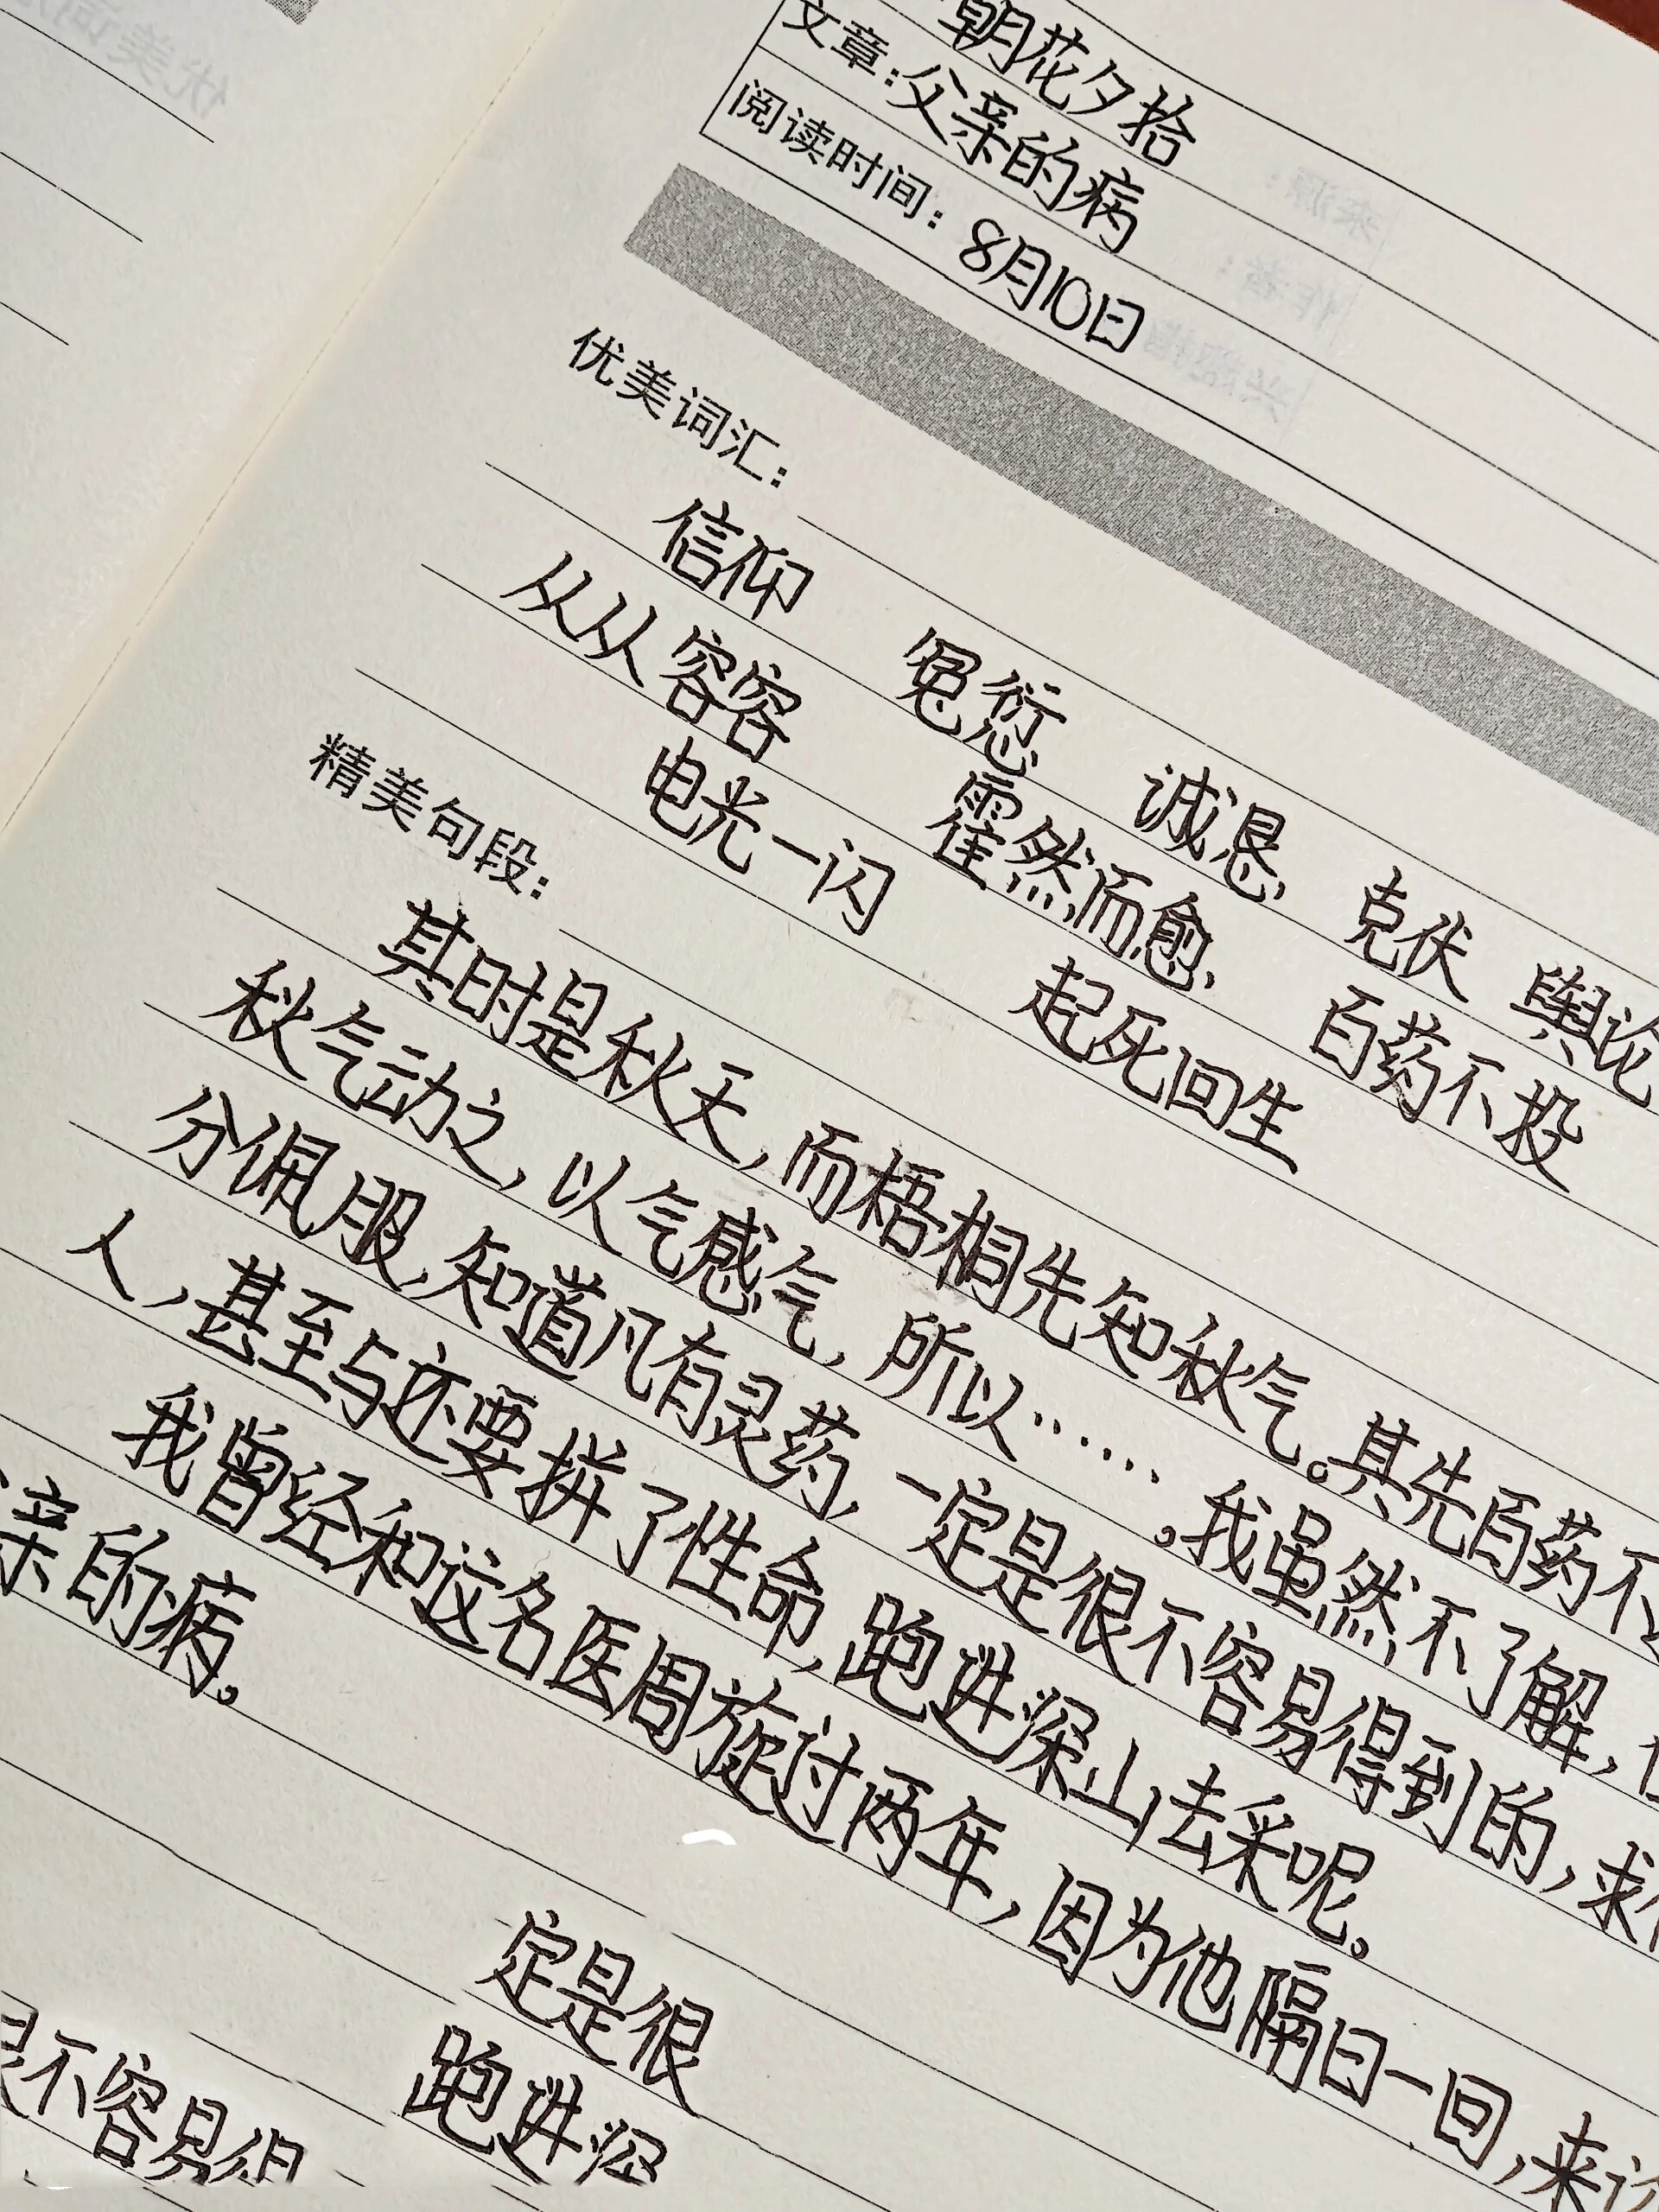 朝花夕拾
文章：父亲的病
阅读时间：8月10日
优美词汇：
信仰 冤愆 诚恳 克伏 舆论
从从容容 霍然而愈 百药不投
电光一闪 起死回生
精美句段：
其时是秋天，而梧桐先知秋气。其先百药不
秋气动之，以气感气，所以……。我虽然不了解，
分佩服，知道凡有灵药，一定是很不容易得到的，求
人，甚至与还要拼了性命，跑进深山去采呢。
我曾经和这名医周旋过两年，因为他隔日一回，来
亲的病。
定是很
跑进深
不容易得